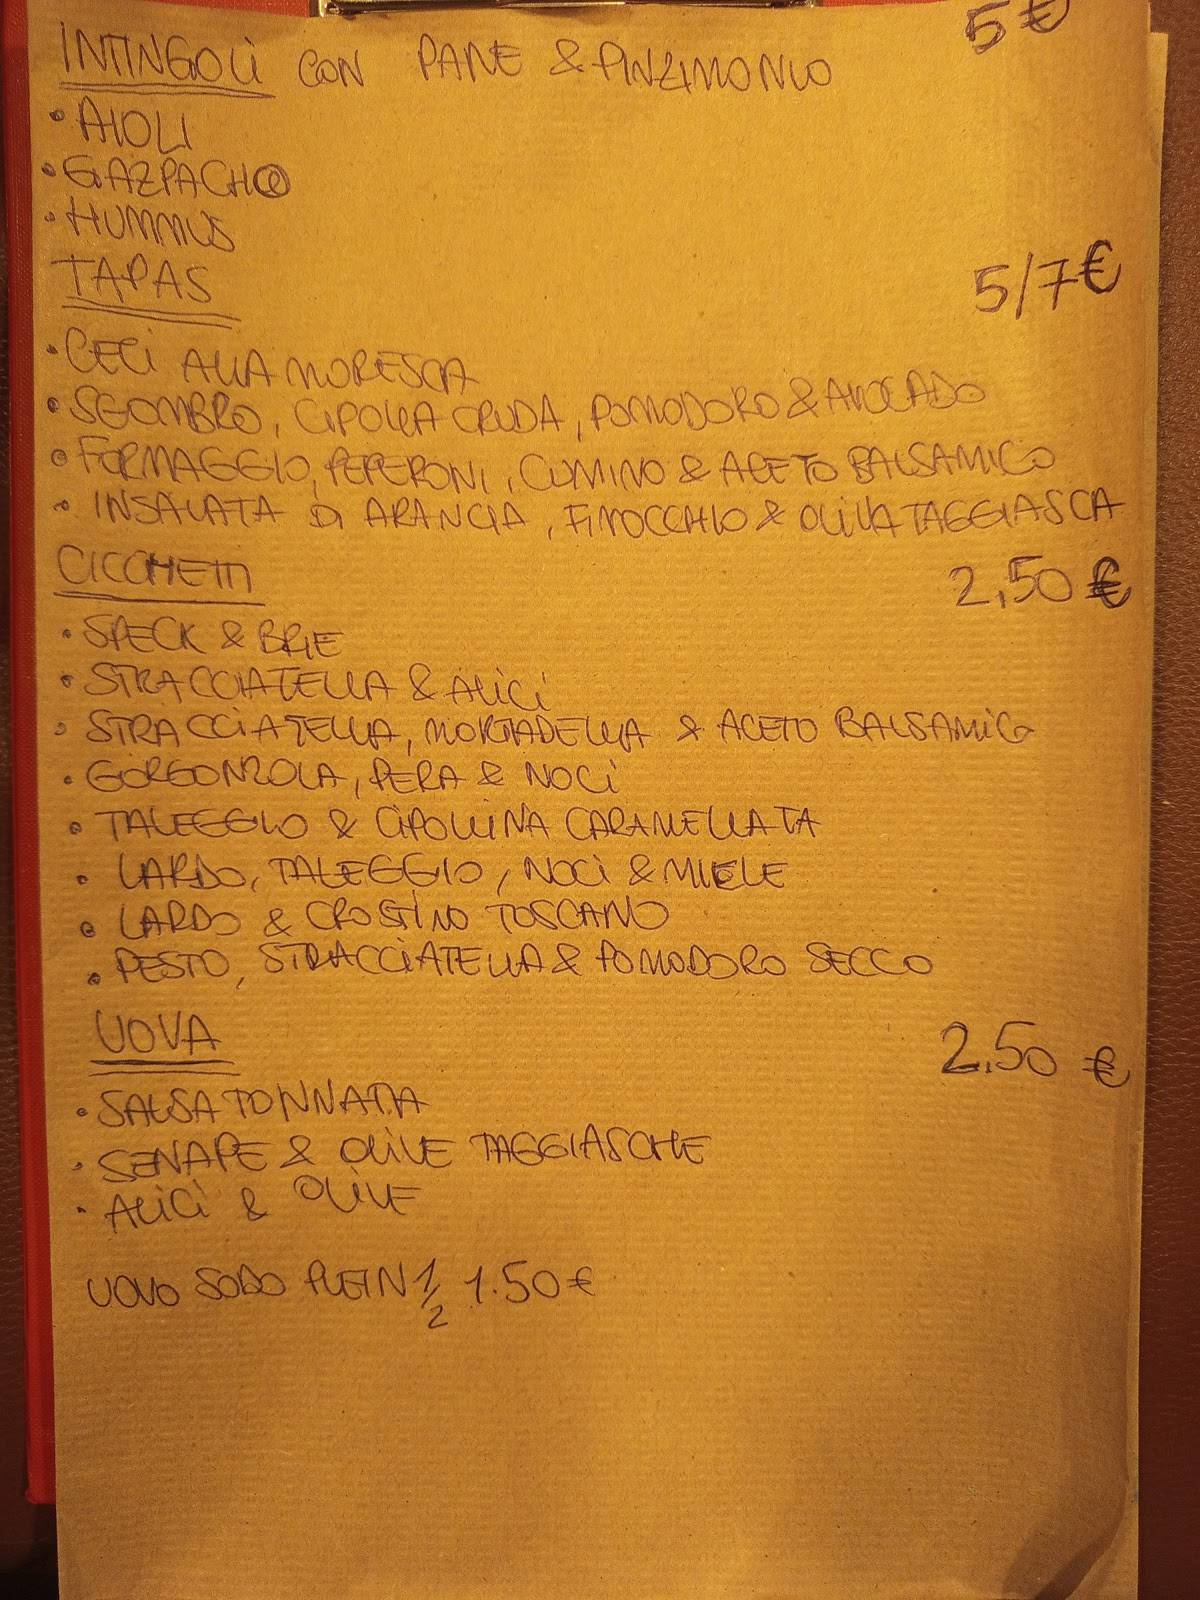 INTINGOLI CON PANE & PINZIMONIO 5€
• AIOLI
• GAZPACHO
• HUMMUS
TAPAS 5/7€
• CECI ALLA MORESCA
• SGOMBRO, CIPOLLA CRUDA, POMODORO & AVOCADO
• FORMAGGIO, PEPERONI, CUMINO & ACETO BALSAMICO
• INSALATA DI ARANCIA, FINOCCHIO & OLIVA TAGGIASCA
CICCHETTI 2,50 €
• SPECK & BRIE
• STRACCIATELLA & ALICI
• STRACCIATELLA, MORTADELLA & ACETO BALSAMICO
• GORGONZOLA, PERA & NOCI
• TALEGGIO & CIPOLLINA CARAMELLATA
• LARDO, TALEGGIO, NOCI & MIELE
• LARDO & CROSTINO TOSCANO
• PESTO, STRACCIATELLA & POMODORO SECCO
UOVA 2.50 €
• SALSA TONNATA
• SENAPE & OLIVE TAGGIASCHE
• ALICI & OLIVE
UOVO SODO PLEIN 1/2 1.50€